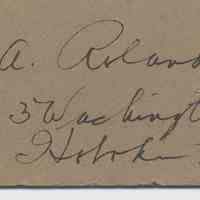 A. Roland
37 Washingt
Hoboken